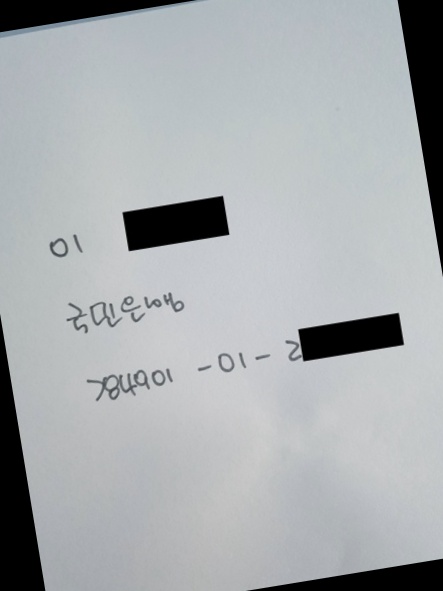 이
국민은행
784901 - 01 - 2